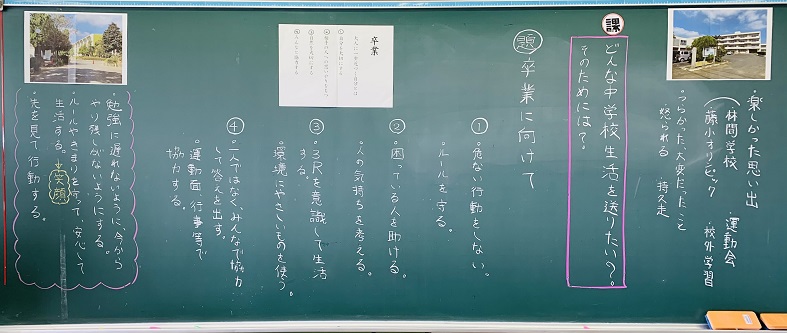 ・楽しかった思い出
林間学校　・運動会
藤小オリンピック　・校外学習
・つらかった、大変だったこと
怒られる　・持久走
課
どんな中学校生活を送りたい？。
そのためには？。
題 卒業に向けて
① ・危ない行動をしない。
・ルールを守る。
② ・困っている人を助ける。
・人の気持ちを考える。
③ ・3Rを意識して生活
する。
・環境にやさしいものを使う。
④ ・一人ではなく、みんなで協力
して答えを出す。
・運動面、行事等で
協力する。
卒業
・勉強に遅れないように、今から
やり残しがないようにする。
・ルールやきまりを守って、安心して
生活する。→笑顔
・先を見て行動する。